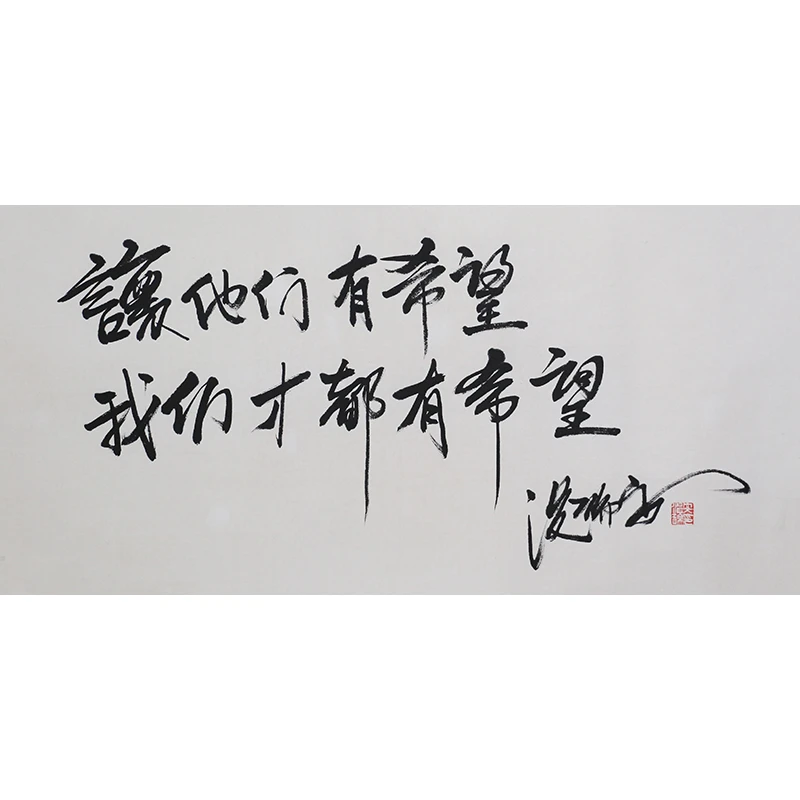 讓他们有希望
我们才都有希望